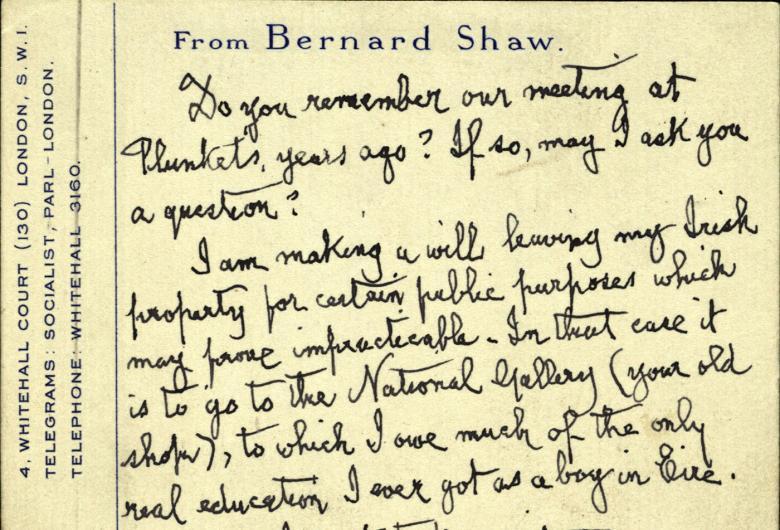 From Bernard Shaw.
4, WHITEHALL COURT (130) LONDON, S.W.1.
TELEGRAMS: SOCIALIST, PARL-LONDON.
TELEPHONE: WHITEHALL 3160.
Do you remember our meeting at
Plunkets, years ago? If so, may I ask you
a question?
I am making a will leaving my Irish
property for certain public purposes which
may prove impracticable. In that case it
is to go to the National Gallery (your old
shop), to which I owe much of the only
real education I ever got as a boy in Eire.